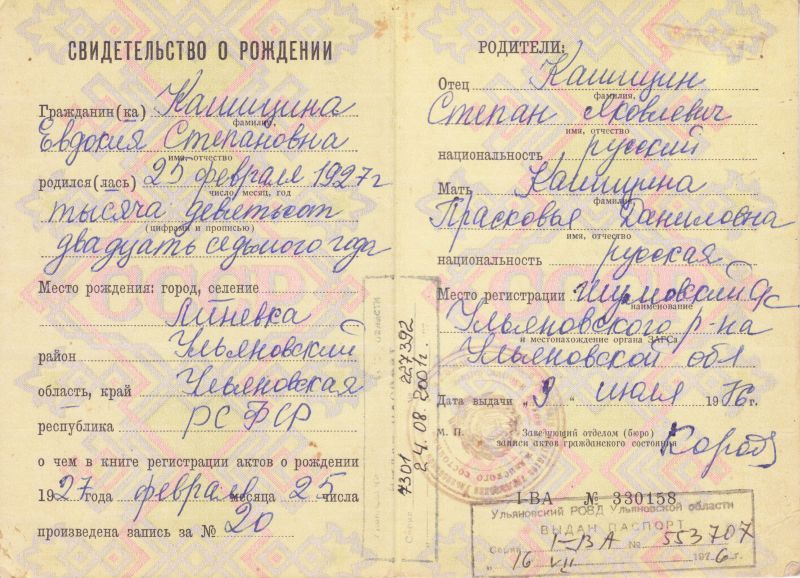 СВИДЕТЕЛЬСТВО О РОЖДЕНИИ
Гражданин(ка) Кашицина
фамилия,
Евдокия Степановна
имя, отчество
родился(лась) 25 февраля 1927 г
число, месяц, год
тысяча девятьсот
(цифрами и прописью)
двадцать седьмого года
Место рождения: город, селение
район Ульяновский
область, край Ульяновская
республика РСФСР
о чем в книге регистрации актов о рождении
1927 года февраль месяца 25 числа
произведена запись за № 20
7301 227392
24.08.2001г.
РОДИТЕЛИ:
Отец Кашицин
фамилия,
Степан Яковлевич
имя, отчество
национальность русский
Мать Кашицина
фамилия,
Прасковья Даниловна
имя, отчество
национальность русская
Место регистрации с/с
наименование
Ульяновского р-на
и местонахождение органа ЗАГСа
Ульяновской обл
Дата выдачи „9" июля 1976 г.
М. П. Заведующий отделом (бюро)
записи актов гражданского состояния
I-ВА № 330158
Ульяновский РОВД Ульяновской области
ВЫДАН ПАСПОРТ
Серия I-ВА № 553707
16 VII 1976 г.